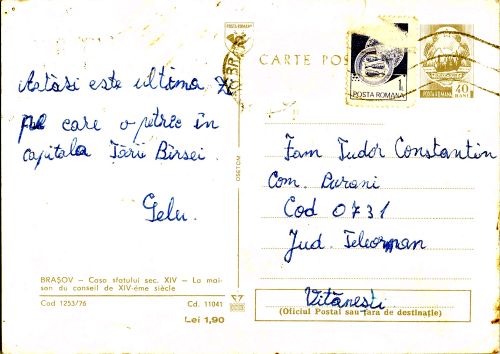 Astăsi este ultima zi
pe care o petrec în
capitala Țării Bîrsei.
Gelu.
BRAȘOV — Casa sfatului sec. XIV — La mai-
son du conseil de XIV-éme siècle
Cod 1253/76 Cd. 11041
Lei 1,90
POȘTA ROMÂNĂ
CARTE POȘ
1L
POSTA ROMANA
POSTA ROMANA 40 BANI
Fam Tudor Constantin
Com. Purani
Cod 0731
Jud. Teleorman
Vităneşti
(Oficiul Postal sau țara de destinație)